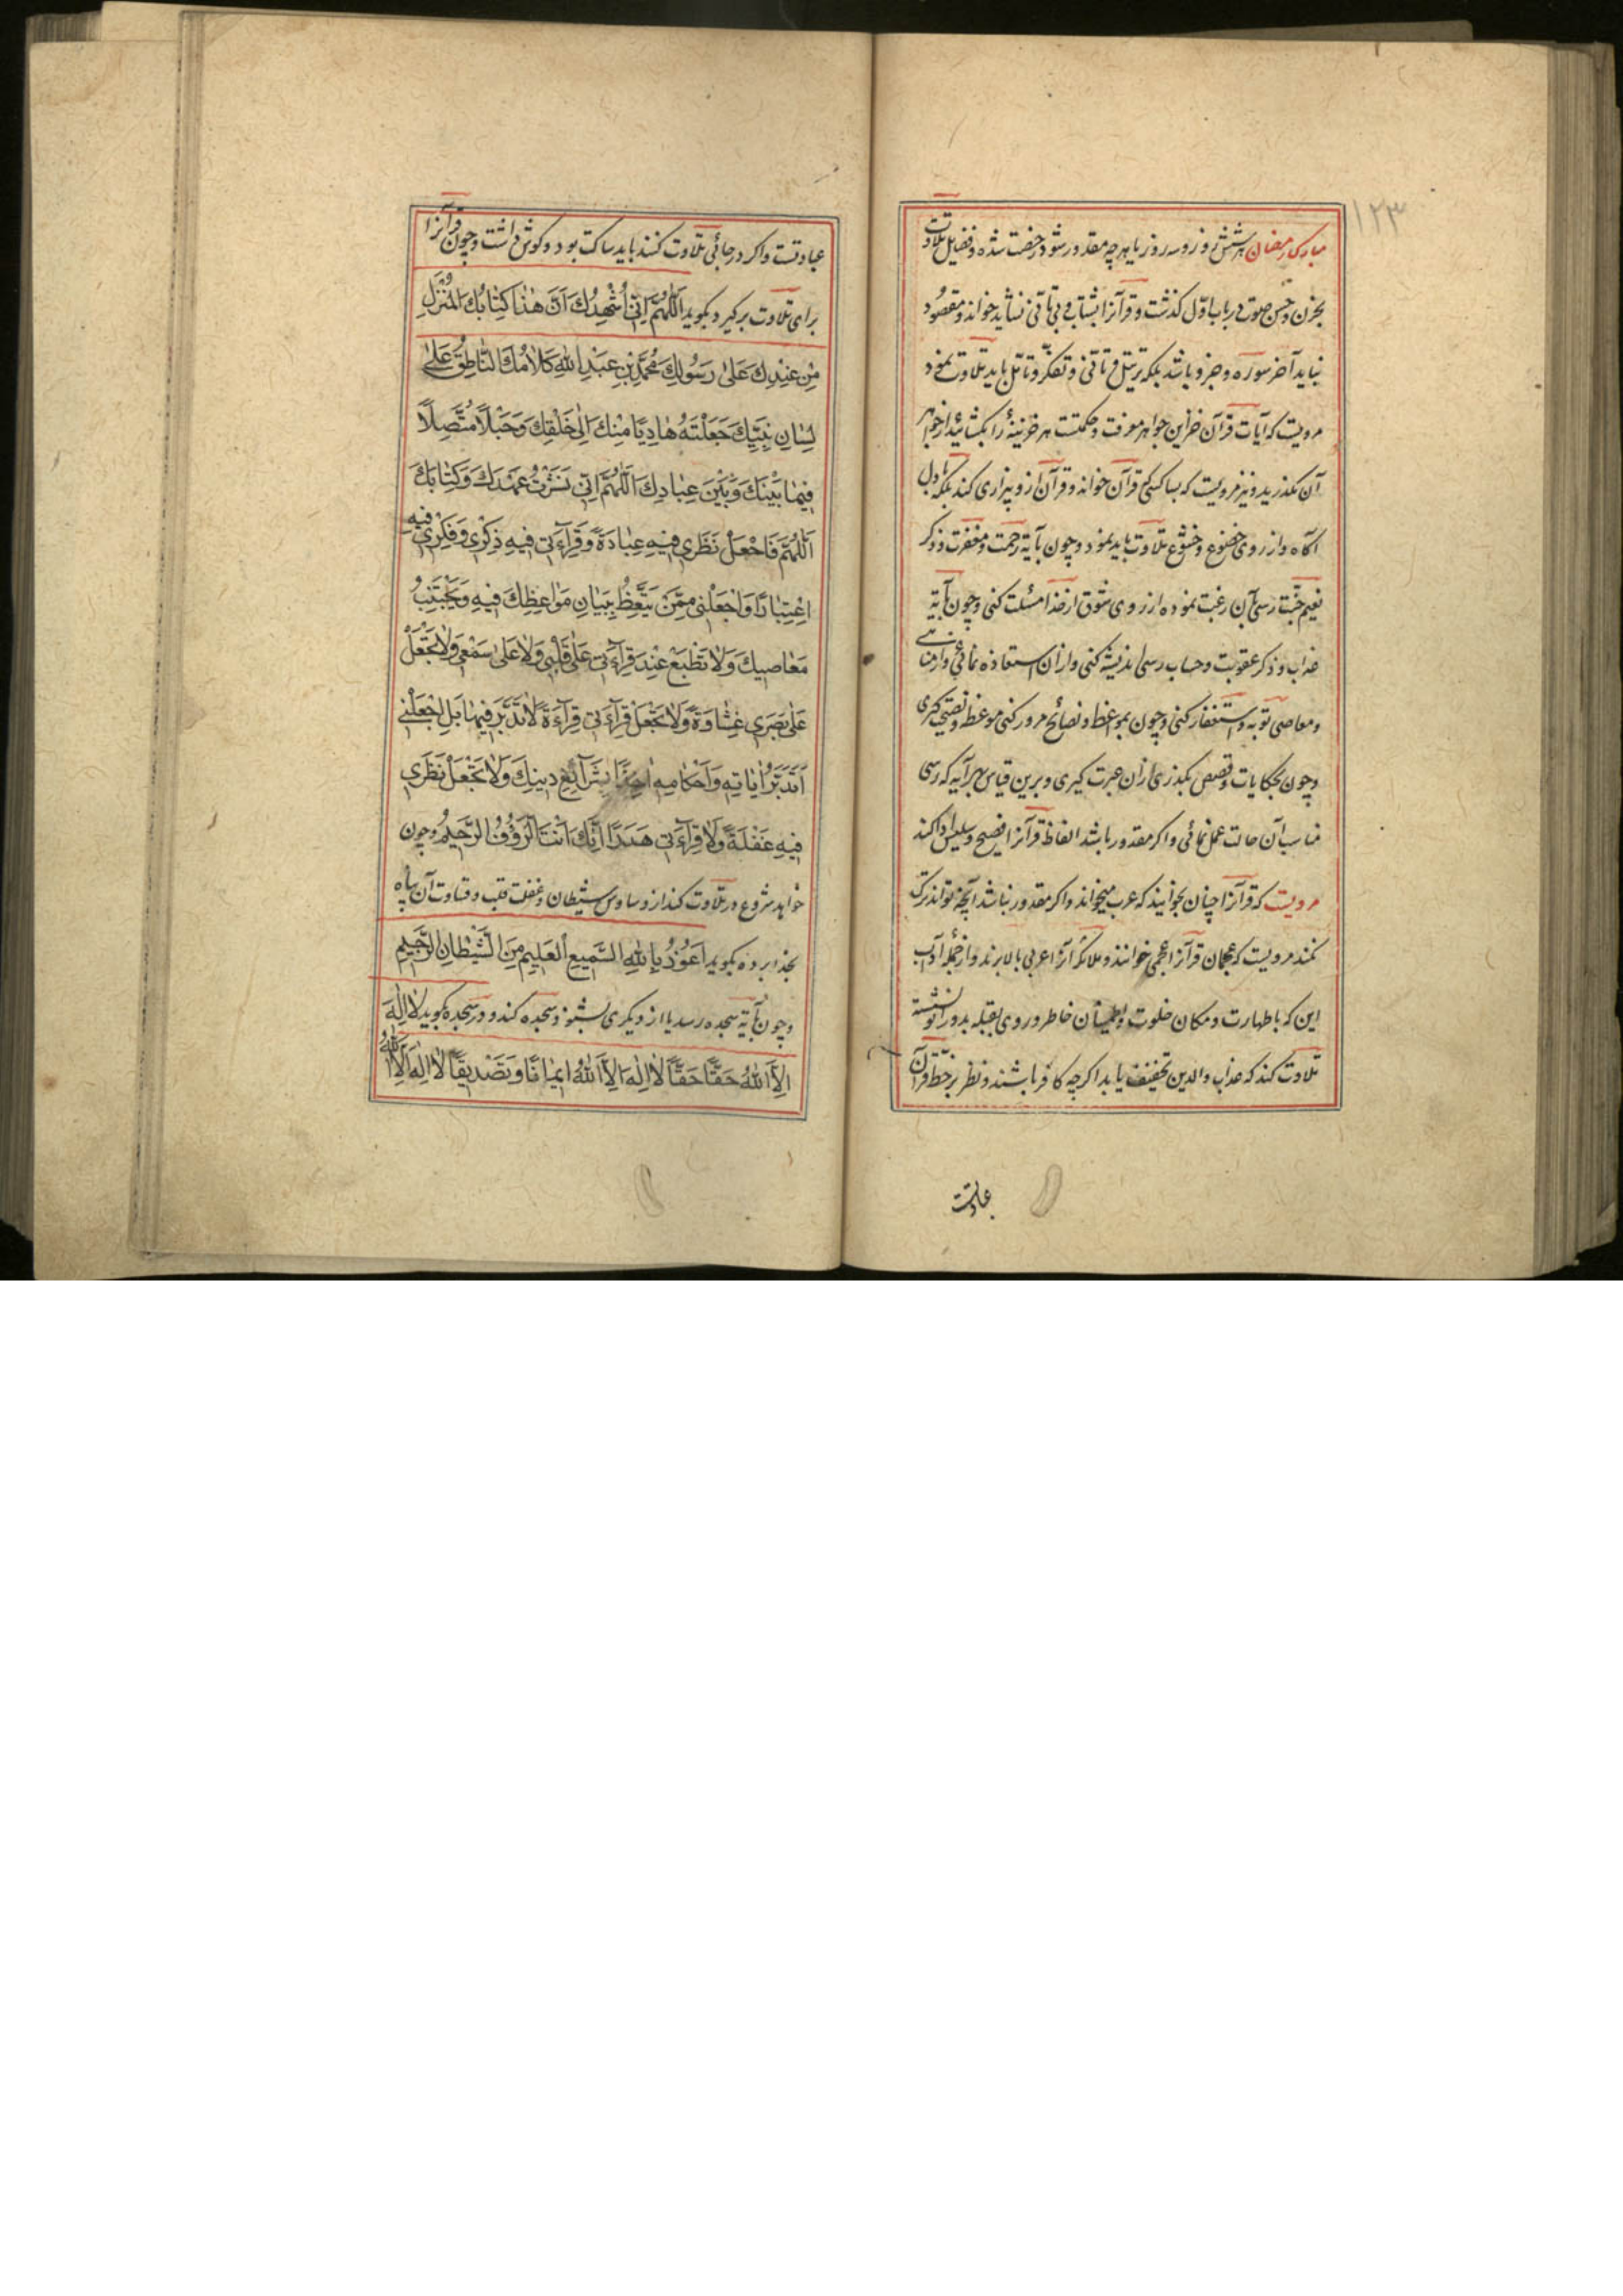 ۱۲۳
مبارک رمضان هر شش روز و سه روز یا هر چه مقدور شود رخصت شده و فضیل تلاوت
بحزن و حسن صوت در باب اول کذشت و قرآنرا بشتاب و بی تأنی نشاید خواند و مقصود
نباید آخر سوره و جزو باشد بلکه بترتیل و تأنی و تفکر و تأمل باید تلاوت نمود
مرویست که آیات قرآن خزاین جواهر معرفت و حکمتست هر خزینهٔ را بکشائید از جواهر
آن نکذرید و نیز مرویست که بسا کسی که قرآن خواند و قرآن ازو بیزاری کند بلکه با دل
آکاه و از روی خضوع و خشوع تلاوت باید نمود و چون بآیهٔ رحمت و مغفرت و ذکر
نعیم جنت رسی بآن رغبت نموده از روی شوق از خدا مسئلت کنی و چون بآیهٔ
عذاب و ذکر عقوبت و حساب رسی اندیشه کنی و از آن استعاذه نمائی و از مناهی
و معاصی توبه و استغفار کنی و چون بمواعظ و نصائح مرور کنی موعظه و نصیحت کیری
و چون بحکایات و قصص بکذری از آن عبرت کیری و برین قیاس بهر آیه که رسی
مناسب آن حالت عمل نمائی و اکر مقدور باشد الفاظ قرآنرا فصیح و سلیس ادا کند
مرویست که قرآنرا چنان بخوانید که عرب میخواند و اکر مقدور نباشد آنچه تواند ترک
نکند مرویست که عجمان قرآنرا عجمی خوانند و ملائکه آنرا عربی بالا برند و از جمله آداب
این که با طهارت و مکان خلوت و اطمینان خاطر و روی بقبله بدو زانو نشسته
تلاوت کند که عذاب والدین تخفیف یابد اکر چه کافر باشند و نظر بر خط قرآن
عبادتست
عبادتست و اکر در جائی تلاوت کنند باید ساکت بود و کوش داشت و چون قرآنرا
برای تلاوت برکیرد بکوید اَللّٰهُمَّ اِنّی اُشْهِدُكَ اَنَّ هٰذا كِتابُكَ الْمُنْزَلُ
مِنْ عِنْدِكَ عَلیٰ رَسُولِكَ مُحَمَّدِ بْنِ عَبْدِ اللّٰهِ كَلامُكَ النّاطِقُ عَلیٰ
لِسانِ نَبِيِّكَ جَعَلْتَهُ هادِيًا مِنْكَ اِلیٰ خَلْقِكَ وَحَبْلًا مُتَّصِلًا
فيما بَيْنَكَ وَبَيْنَ عِبادِكَ اَللّٰهُمَّ اِنّی نَشَرْتُ عَهْدَكَ وَكِتابَكَ
اَللّٰهُمَّ فَاجْعَلْ نَظَری فيهِ عِبادَةً وَقِرآءَتی فيهِ ذِكْری وَفِكْری فيهِ
اِعْتِبارًا وَاجْعَلْنی مِمَّنْ يَتَّعِظُ بِبَيانِ مَواعِظِكَ فيهِ وَيَجْتَنِبُ
مَعاصيكَ وَلا تَطْبَعْ عِنْدَ قِرآءَتی عَلیٰ قَلْبی وَلا عَلیٰ سَمْعی وَلا تَجْعَلْ
عَلیٰ بَصَری غِشاوَةً وَلا تَجْعَلْ قِرآءَتی قِرآءَةً لا تَدَبُّرَ فيها بَلِ اجْعَلْنی
اَتَدَبَّرُ اٰياتِهِ وَاَحْكامِهِ اٰخِذًا بِشَرآئِعِ دينِكَ وَلا تَجْعَلْ نَظَری
فيهِ غَفْلَةً وَلا قِرآءَتی هَذَرًا اِنَّكَ اَنْتَ الرَّؤُفُ الرَّحيمُ و چون
خواهد شروع در تلاوت کند از وساوس شیطان و غفلت قلب و قساوت آن پناه
بخدا برده بکوید اَعُوذُ بِاللّٰهِ السَّميعِ الْعَليمِ مِنَ الشَّيْطانِ الرَّجيمِ
و چون بآیهٔ سجده رسد یا از دیکری بشنود سجده کند و در سجده بکوید لا اِلٰهَ
اِلَّا اللّٰهُ حَقًّا حَقًّا لا اِلٰهَ اِلَّا اللّٰهُ ايمانًا وَتَصْديقًا لا اِلٰهَ اِلَّا اللّٰهُ